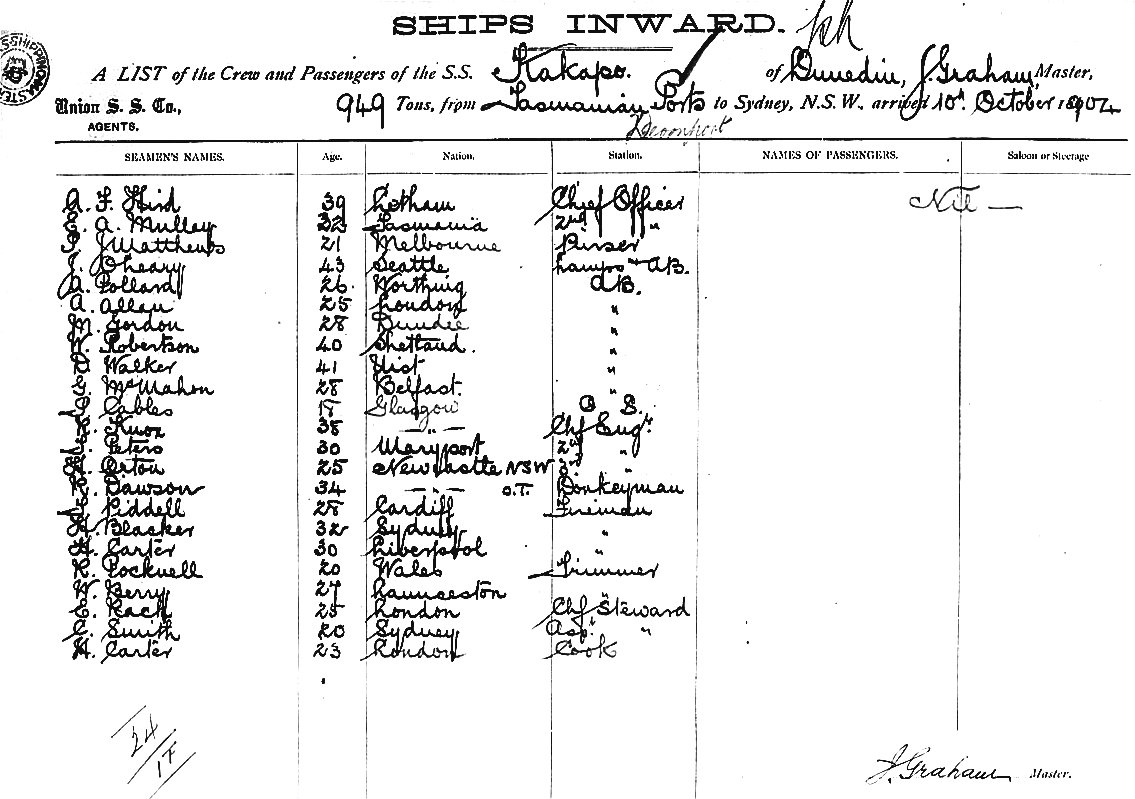 SHIPS INWARD.
A LIST of the Crew and Passengers of the S.S. Kakapo. of Dunedin, J. Graham Master,
Union S. S. Co., 949 Tons, from Tasmanian Ports to Sydney, N.S.W., arrived 10th October 1904
AGENTS. Devonport
SEAMEN'S NAMES. Age. Nation. Station. NAMES OF PASSENGERS. Saloon or Steerage
A. F. Hird 39 Chief Officer Nil —
E. A. Mulley Tasmania 2nd "
Matthews 21 Melbourne Purser
43 Seattle Lamps + AB.
A. Pollard 26 Worthing AB.
A. Allan 25 London "
M. Gordon 28 Dundee "
W. Robertson 40 Shetland. "
D. Walker 41 Uist "
McMahon 28 Belfast. "
Cables Glasgow O S.
Knox 38 — " — Chf Engr.
Peters 30 Maryport 2nd "
Orton 25 Newcastle NSW 3rd "
R. Dawson 34 — " — O.T. Donkeyman
Piddell 28 Cardiff Fireman
H. Blacker 32 Sydney "
H. Carter 30 Liverpool "
R. Pocknell 20 Wales Trimmer
W. Berry 27 Launceston "
E. Rach 25 London Chf Steward
Smith 20 Sydney "
H. Carter 23 London Cook
24/17
J. Graham Master.